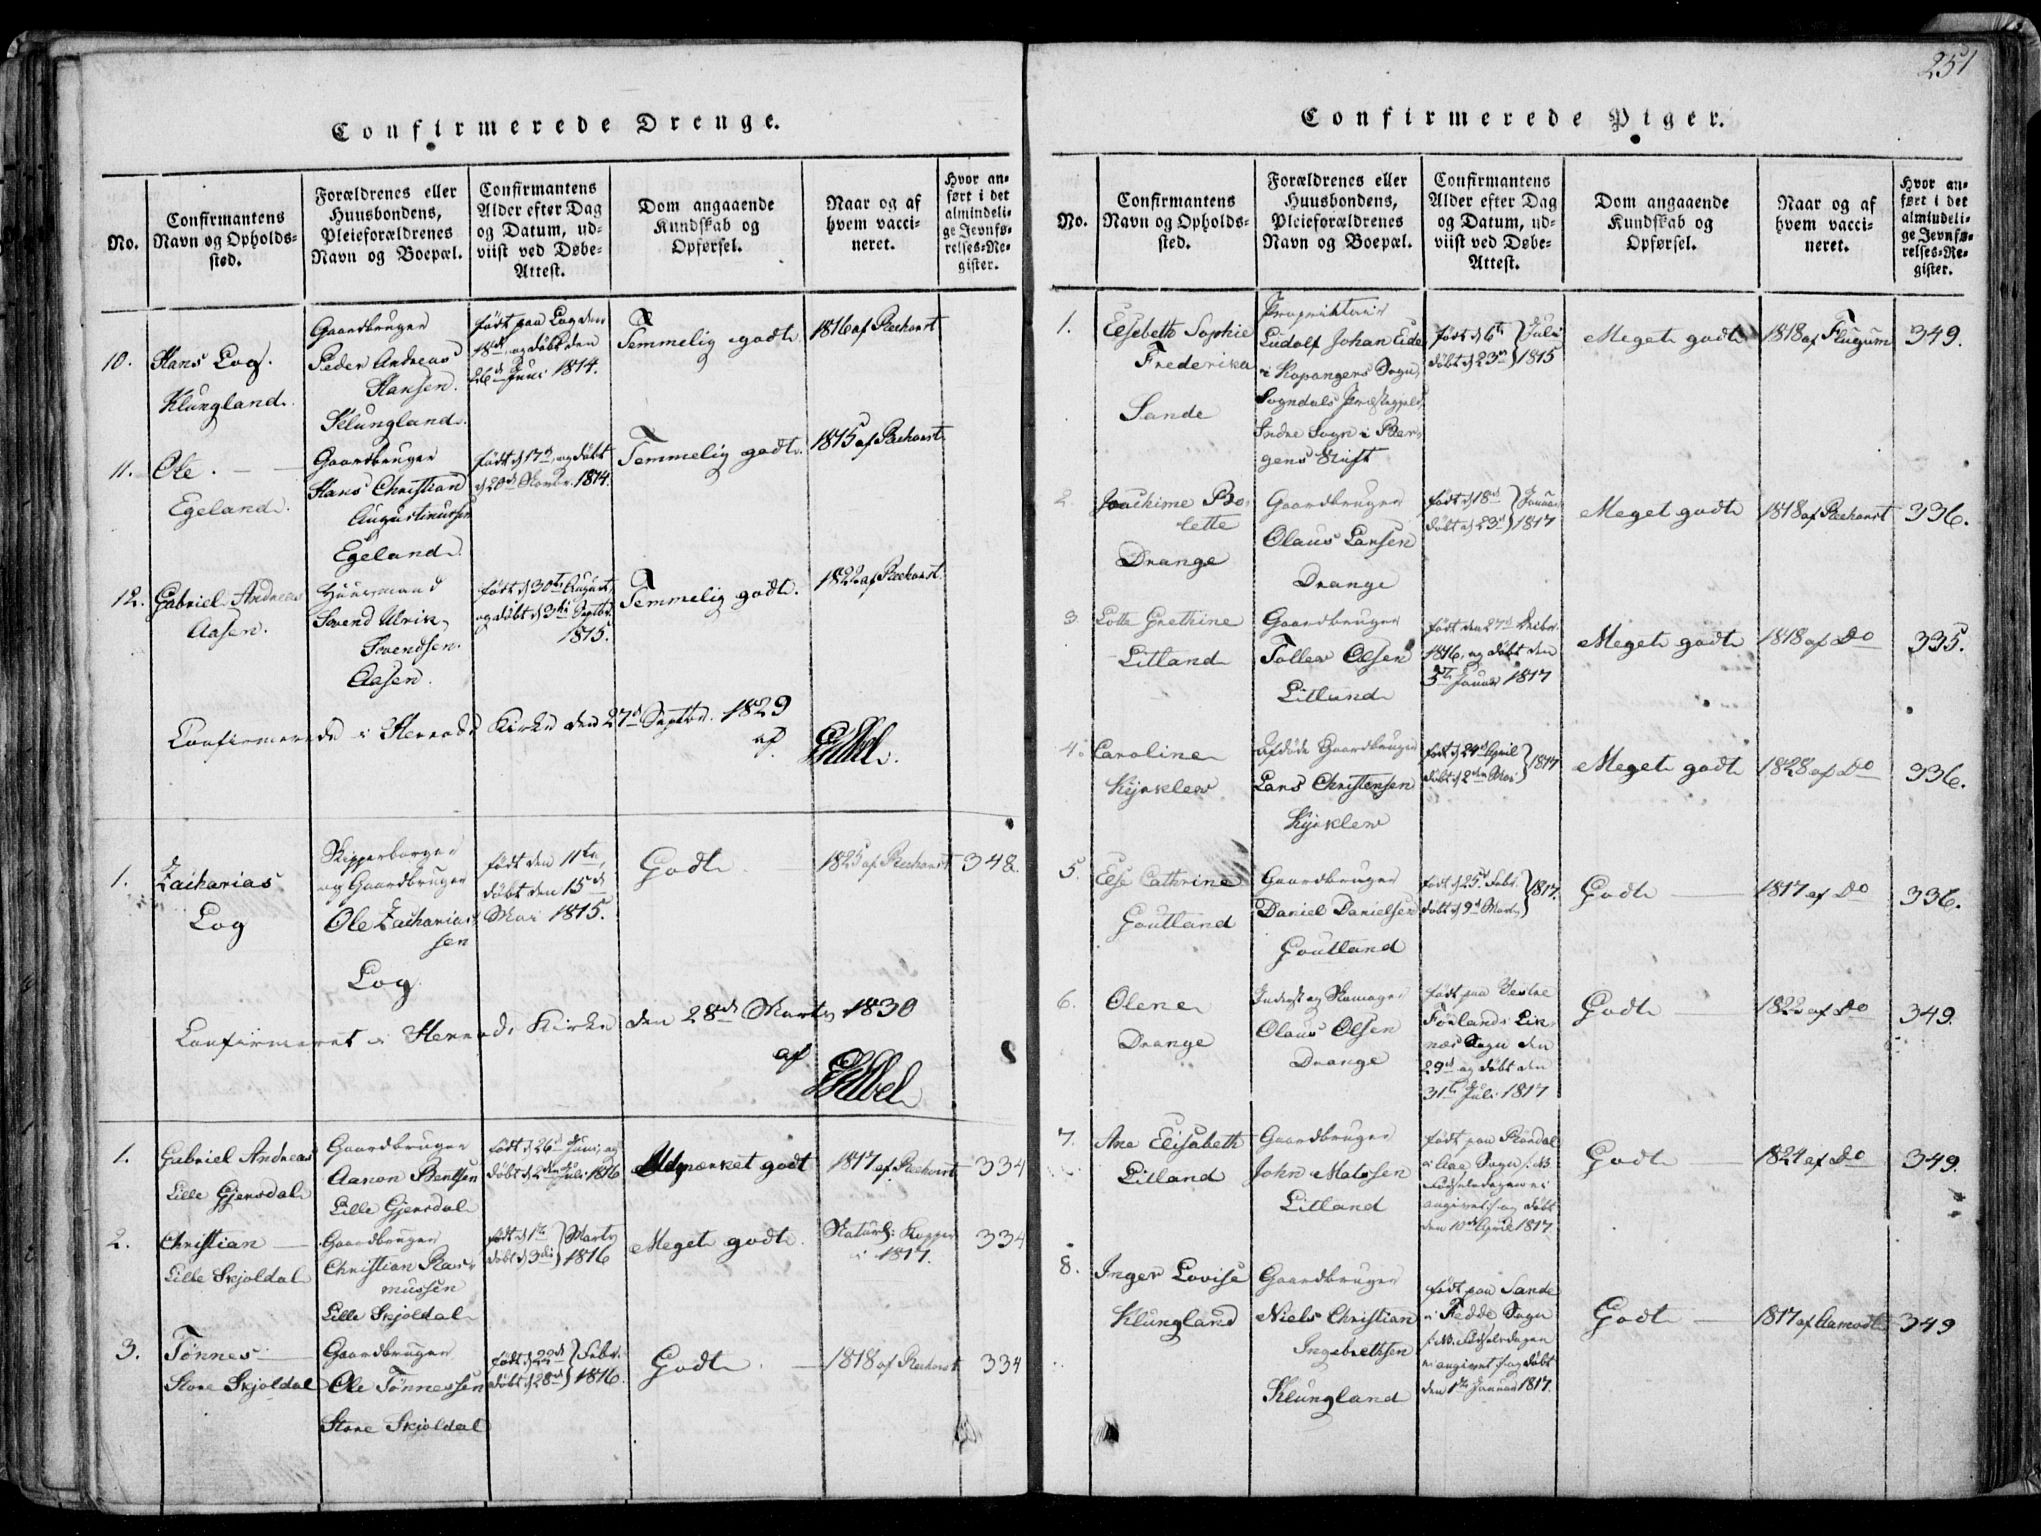 251
Confirmerede Drenge.
No.
Confirmantens
Navn og Opholds-
sted.
Forældrenes eller
Huusbondens,
Pleieforældrenes
Navn og Boepæl.
Confirmantens
Alder efter Dag
og Datum, ud-
viist ved Døbe-
Attest.
Dom angaaende
Kundskab og
Opførsel.
Naar og af
hvem vacci-
neret.
Hvor an-
ført i det
almindeli-
ge Jevnfø-
relses-Re-
gister.
10.
Hans Log.
Klungland.
Gaardbruger
Peder Andreas
Hansen.
Klungland.
født paa Log den
18de og døbt den
26de Juni 1814.
Temmelig godt.
1816 af Reehorst
11.
Ole.
Egeland.
Gaardbruger
Hans Christian
Augustinussen
Egeland.
født d 17de og døbt
d 20de Novbr. 1814.
Temmelig godt.
1815 af Reehorst
12.
Gabriel Andreas
Aasen.
Huusmand
Svend Ulrik
Svendsen.
Aasen.
født d 30te August,
og døbt d 3die Septbr.
1815.
Temmelig godt.
1822 af Reehorst.
Confirmerede i Herrods Kirke den 27de Septbr. 1829
af
1.
Zacharias
Log
Skipperborger
og Gaardbruger
Ole Zacharias-
sen
Log
født den 11te,
døbt den 15de
Mai 1815.
Godt
1825 af Reehorst
348.
Confirmeret i Herrods Kirke den 28de Marts 1830
af
1.
Gabriel Andreas
Lille Gjersdal
Gaardbruger
Aanon Bentsen
Lille Gjersdal
født d 26de Juni, og
døbt d 2den Juli 1816
Udmærket godt
1817 af Reehorst
334
2.
Christian
Lille Skjoldal
Gaardbruger
Christian Ras-
mussen
Lille Skjoldal
født d 1te
døbt d 3die
Marts
1816
Meget godt.
Naturl: Kopper
i 1817.
334
3.
Tønnes
Store Skjoldal
Gaardbruger
Ole Tønnessen
Store Skjoldal
født d 22de
døbt d 28de
Febr.
1816.
Godt.
1818 af Reehorst
334
Confirmerede Piger.
No.
Confirmantens
Navn og Opholds-
sted.
Forældrenes eller
Huusbondens,
Pleieforældrenes
Navn og Boepæl.
Confirmantens
Alder efter Dag
og Datum, ud-
viist ved Døbe-
Attest.
Dom angaaende
Kundskab og
Opførsel.
Naar og af
hvem vacci-
neret.
Hvor an-
ført i det
almindeli-
ge Jevnfø-
relses-Re-
gister.
1.
Elsebeth Sophie
Frederika
Sande
Proprietair
Ludolf Johan Eide
i Kopangers Sogn,
Sogndals Præstegjeld,
Indre Sogn i Ber-
gens Stift
født d 6te
døbt d 23de
Juli
1815
Meget godt
1818 af Flugum
349.
2.
Joachime Bo-
lette
Drange
Gaardbruger
Olaus Larsen
Drange
født d 18de
døbt d 23de
Januar
1817
Meget godt
1818 af Reehorst
336.
3.
Lotte Grethine
Litland
Gaardbruger
Tollev Olsen
Litland
født den 27de Decbr.
1816, og døbt den
5te Januar 1817
Meget godt
1818 af Do
335.
4.
Caroline
Kjørklev
afdøde Gaardbruger
Lars Christensen
Kjørklev
født d 24de April
døbt d 2den Mai
1817
Meget godt
1828 af Do
336.
5.
Else Cathrine
Goutland
Gaardbruger
Daniel Danielsen
Goutland
født d 25de Febr.
døbt d 9de Marts
1817.
Godt
1817 af Do
336.
6.
Olene
Drange
Inderst og Skomager
Olaus Olsen
Drange
født paa Vestre
Førland i Lik-
næs Sogn den
29de og døbt den
31te Juli 1817
Godt
1822 af Do
349.
7.
Ane Elisabeth
Litland
Gaardbruger
John Matosen
Litland
født paa Røndal
i Aae Sogn /: NB.
Fødselsdagen ei
angivet :/ og døbt
den 10de April 1817.
Godt
1824 af Do
349.
8.
Inger Lovise
Klungland
Gaardbruger
Niels Christian
Ingebrethsen
Klungland
født paa Sande
i Fedde Sogn
/: NB. Fødselsdagen
ei angivet :/ og døbt
den 1te Januar 1817.
Godt
1817 af Aamodt
349